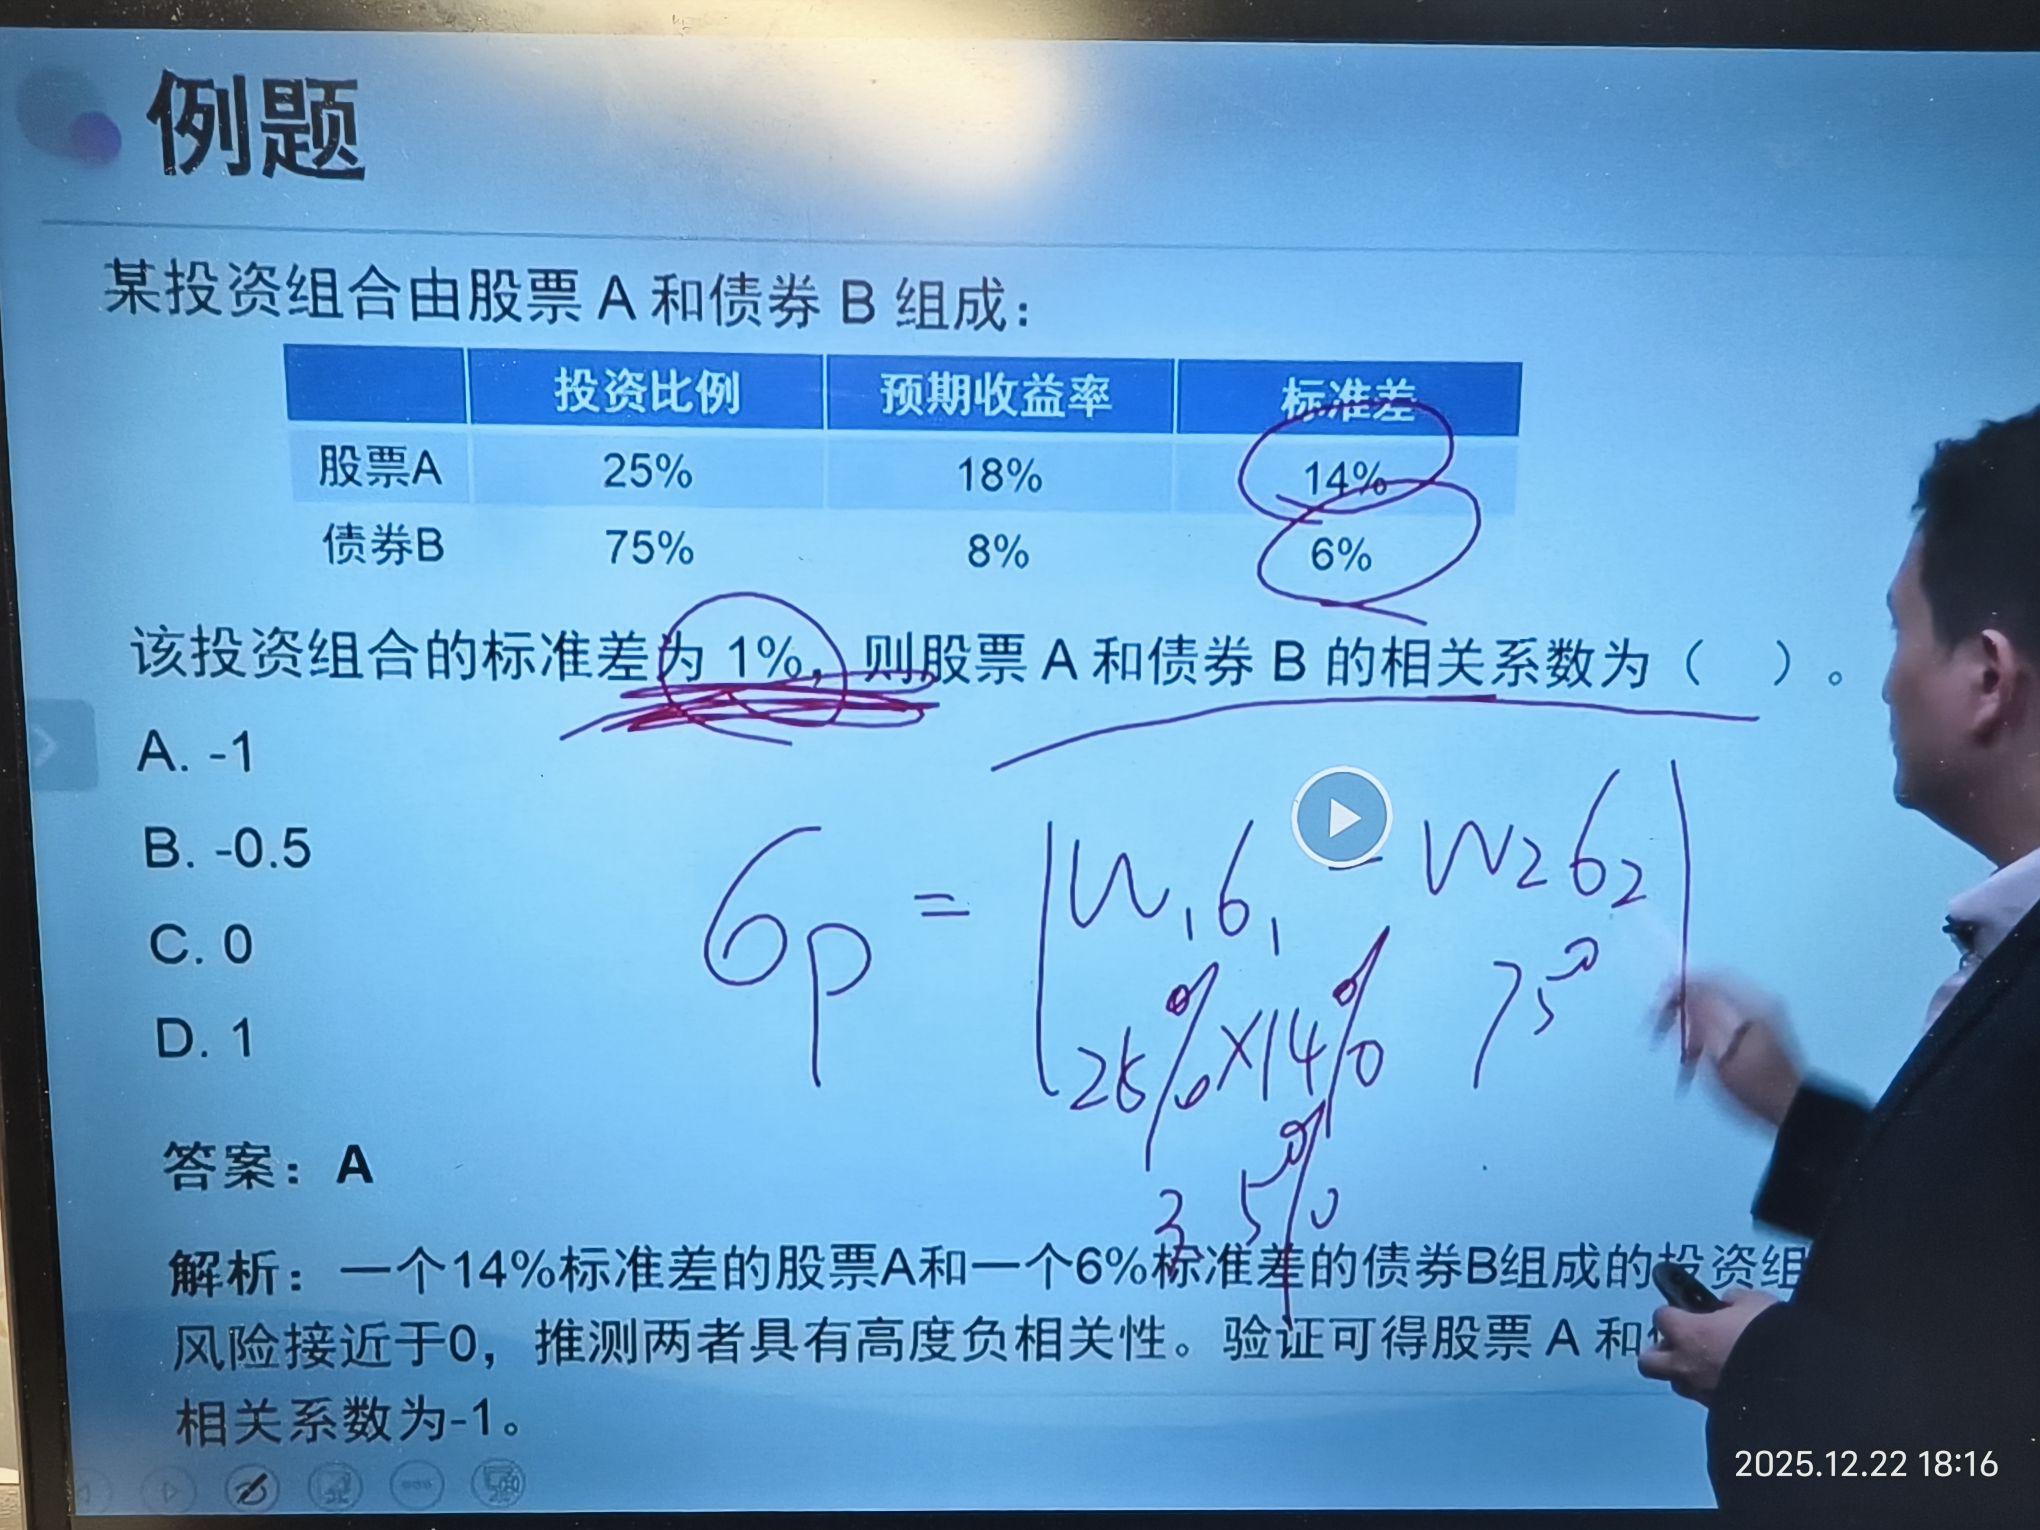 例题
某投资组合由股票 A 和债券 B 组成：
投资比例 预期收益率 标准差
股票A 25% 18% 14%
债券B 75% 8% 6%
该投资组合的标准差为 1%，则股票 A 和债券 B 的相关系数为（ ）。
A. -1
B. -0.5
C. 0
D. 1
6p = |W₁6₁ - W₂6₂|
25%×14% 75
3.5%
答案：A
解析：一个14%标准差的股票A和一个6%标准差的债券B组成的投资组
风险接近于0，推测两者具有高度负相关性。验证可得股票 A 和
相关系数为-1。
2025.12.22 18:16